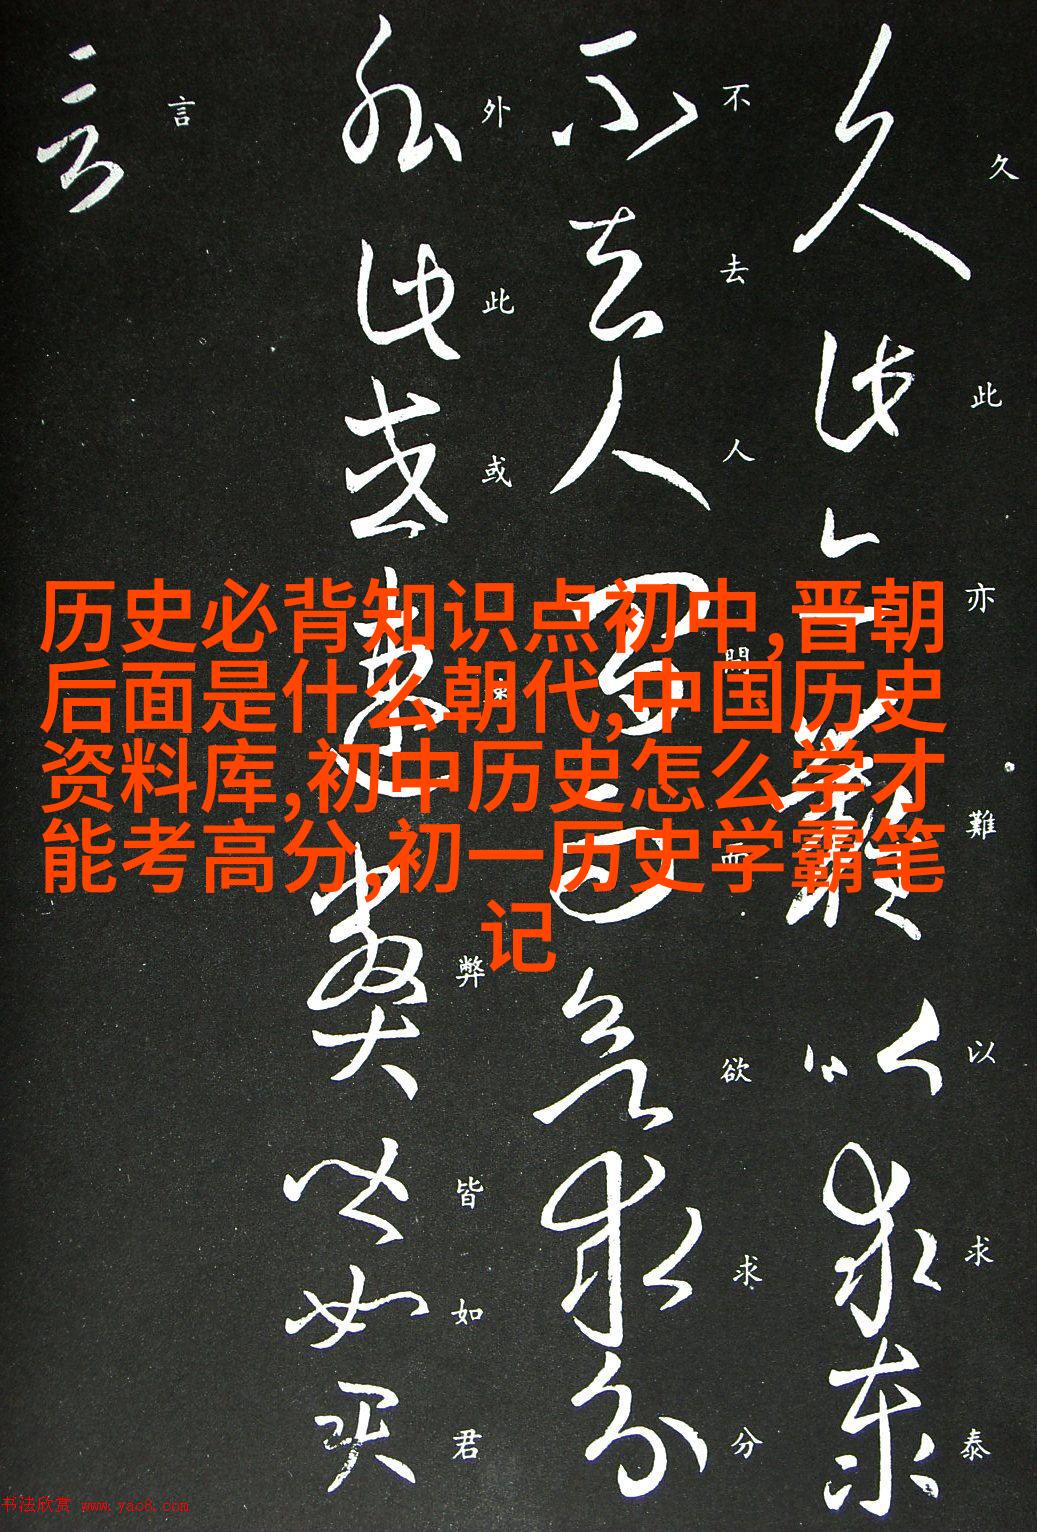 久此亦難以求泰
不去人間而欲求分
外此或
弊皆如君
言
历史必背知识点初中,晋朝
后面是什么朝代,中国历史
资料库,初中历史怎么学才
能考高分,初一历史学霸笔
记
书法欣赏 www.yac8.com